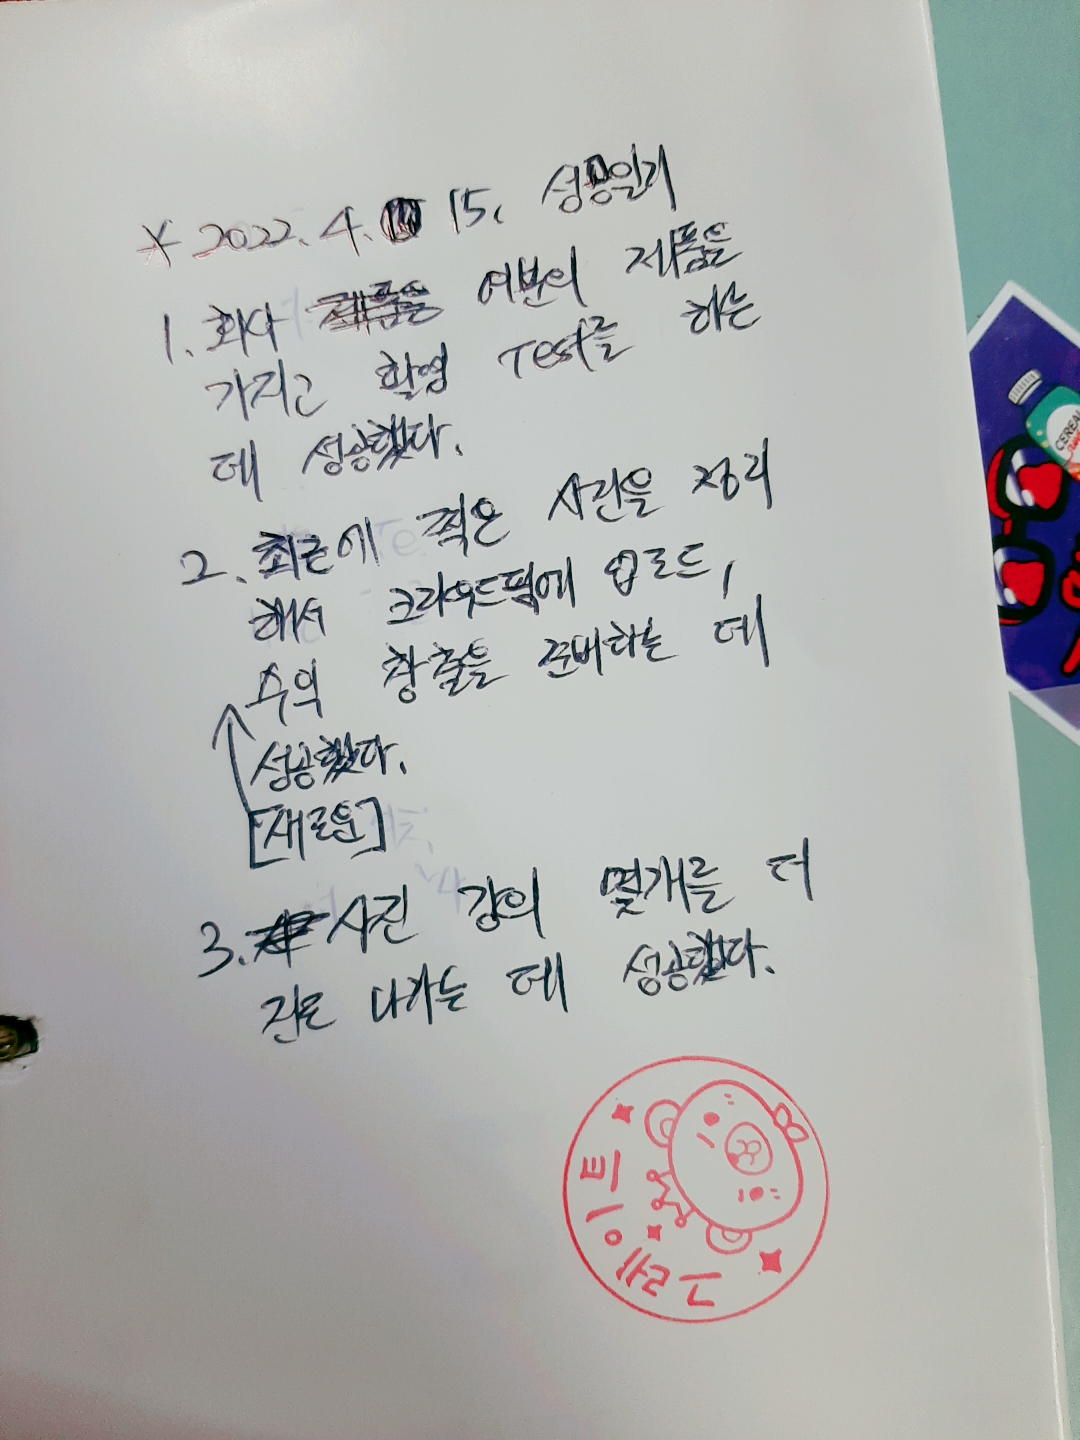 * 2022. 4. 15. 성공일기
1. 회사 여분의 제품을
가지고 촬영 Test를 하는
데 성공했다.
2. 최근에 찍은 사진을 정리
해서 크라우드픽에 업로드,
수익 창출을 준비하는 데
성공했다.
[새로운]
3. 사진 강의 몇개를 더
진도 나가는 데 성공했다.
그레이트
CEREAL